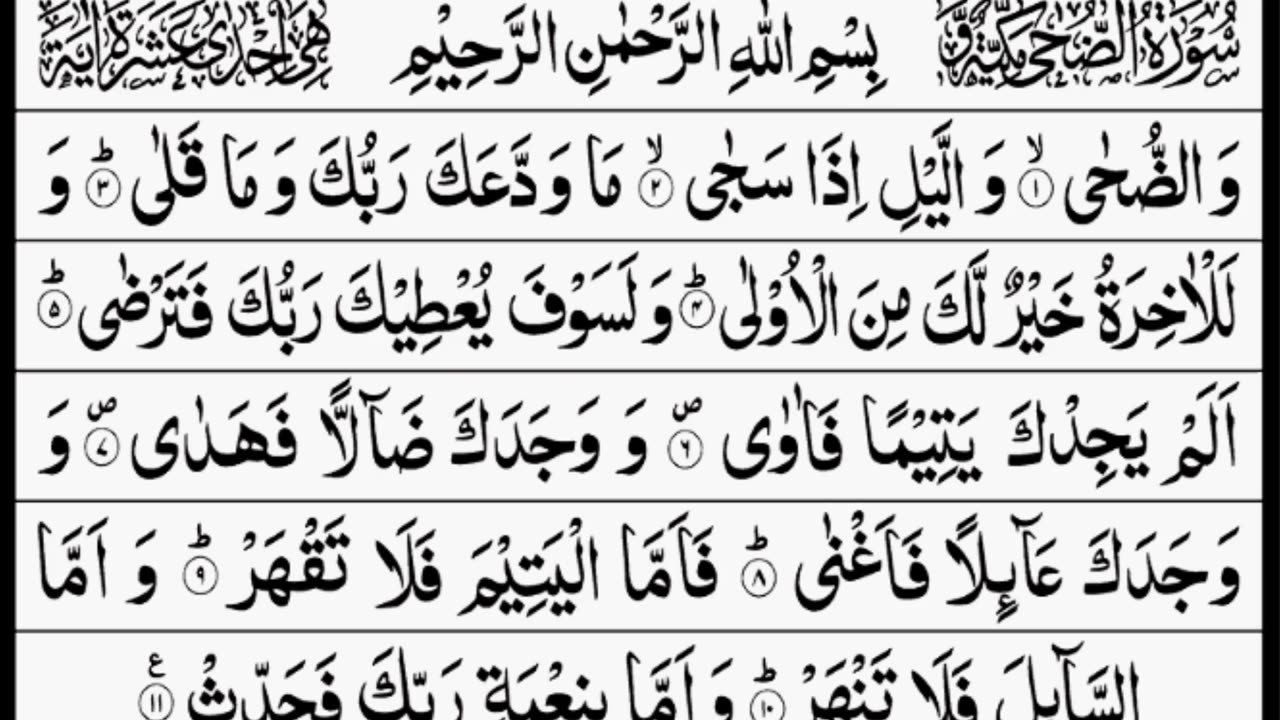 سُوْرَةُ الضُّحٰى مَكِّيَّةٌ وَّ بِسْمِ اللّٰهِ الرَّحْمٰنِ الرَّحِيْمِ هِىَ اِحْدٰى عَشْرَةَ اٰيَةً
وَ الضُّحٰى ۙ﴿۱﴾ وَ الَّيْلِ اِذَا سَجٰى ۙ﴿۲﴾ مَا وَدَّعَكَ رَبُّكَ وَ مَا قَلٰى ؕ﴿۳﴾ وَ
لَلْاٰخِرَةُ خَيْرٌ لَّكَ مِنَ الْاُوْلٰى ؕ﴿۴﴾ وَ لَسَوْفَ يُعْطِيْكَ رَبُّكَ فَتَرْضٰى ؕ﴿۵﴾
اَلَمْ يَجِدْكَ يَتِيْمًا فَاٰوٰى ۪﴿۶﴾ وَ وَجَدَكَ ضَآلًّا فَهَدٰى ۪﴿۷﴾ وَ
وَجَدَكَ عَآئِلًا فَاَغْنٰى ؕ﴿۸﴾ فَاَمَّا الْيَتِيْمَ فَلَا تَقْهَرْ ؕ﴿۹﴾ وَ اَمَّا
السَّآئِلَ فَلَا تَنْهَرْ ؕ﴿۱۰﴾ وَ اَمَّا بِنِعْمَةِ رَبِّكَ فَحَدِّثْ ﴿۱۱﴾ ع